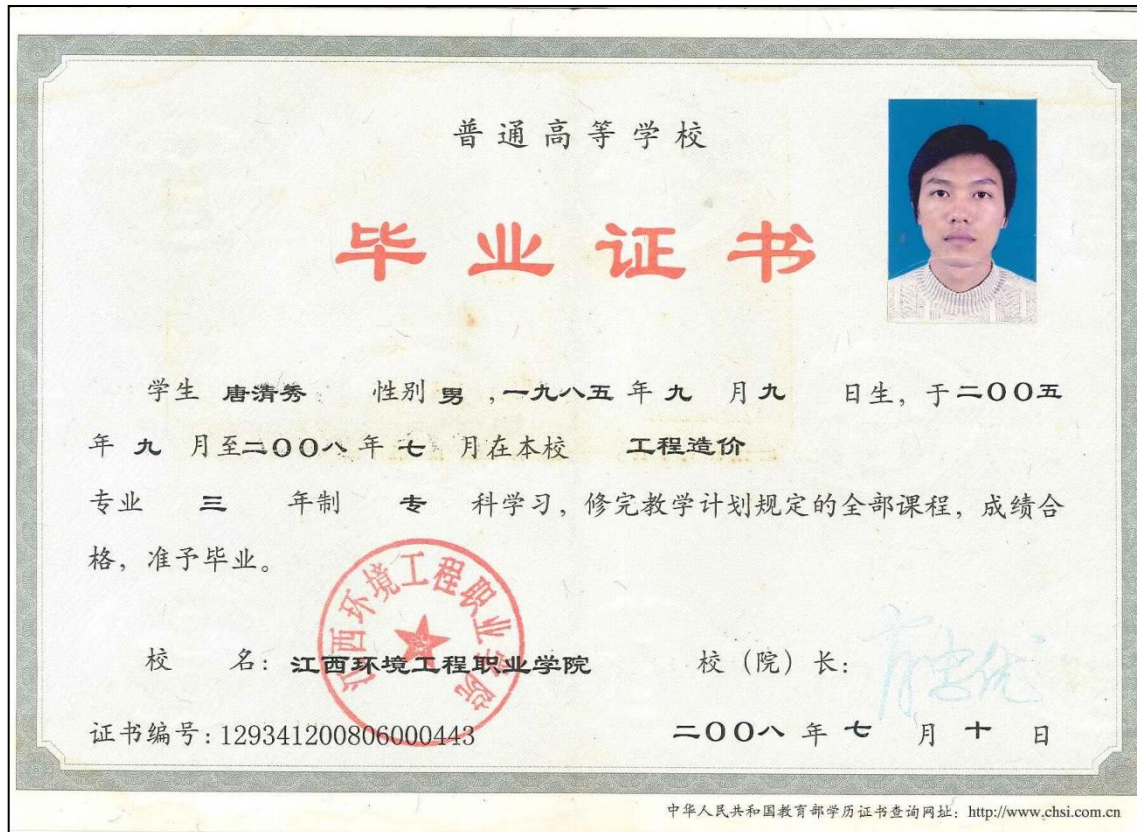 普通高等学校
毕业证书
学生 唐清秀 性别 男 ,一九八五 年 九 月 九 日生，于二〇〇五
年 九 月至二〇〇八 年 七 月在本校 工程造价
专业 三 年制 专 科学习，修完教学计划规定的全部课程，成绩合
格，准予毕业。
江西环境工程职业学院
校 名：江西环境工程职业学院 校（院）长：
证书编号：129341200806000443 二〇〇八 年 七 月 十 日
中华人民共和国教育部学历证书查询网址：http://www.chsi.com.cn